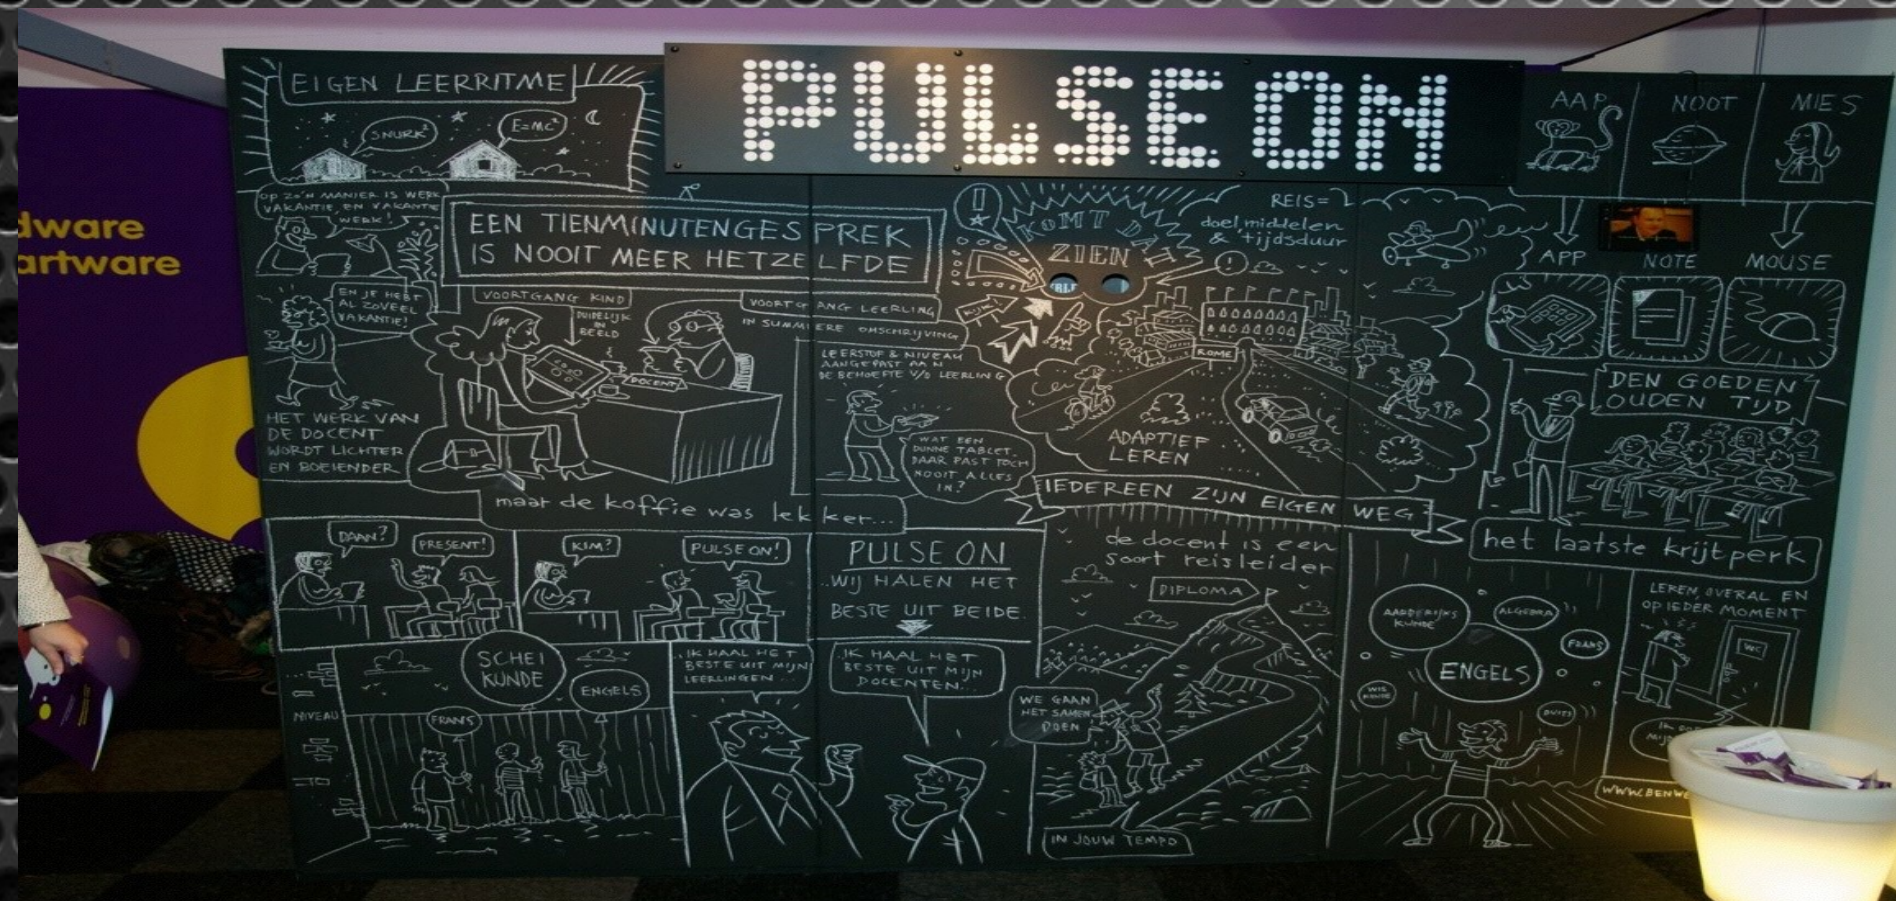 dware
artware
PULSE ON
EIGEN LEERRITME
SNURK²
E=MC²
OP ZO'N MANIER IS WERK
VAKANTIE EN VAKANTIE
WERK!
EN JE HEBT
AL ZOVEEL
VAKANTIE!
HET WERK VAN
DE DOCENT
WORDT LICHTER
EN BOEIENDER
EEN TIENMINUTENGESPREK
IS NOOIT MEER HETZELFDE
VOORTGANG KIND
DUIDELIJK
IN
BEELD
DOCENT
VOORTGANG LEERLING
IN SUMMIERE OMSCHRIJVING
LEERSTOF & NIVEAU
AANGEPAST AAN
DE BEHOEFTE V/D LEERLING
WAT EEN
DUNNE TABLET.
DAAR PAST TOCH
NOOIT ALLES
IN?
maar de koffie was lekker...
!
KOMT DAT
ZIEN
!
KIJK
REIS=
doel, middelen
& tijdsduur
ROME
ADAPTIEF
LEREN
IEDEREEN ZIJN EIGEN WEG
AAP
NOOT
MIES
APP
NOTE
MOUSE
DEN GOEDEN
OUDEN TIJD
het laatste krijtperk
DAAN?
PRESENT!
KIM?
PULSE ON!
PULSE ON
..WIJ HALEN HET
BESTE UIT BEIDE.
NIVEAU
SCHEI
KUNDE
ENGELS
FRANS
..IK HAAL HET
BESTE UIT MIJN
LEERLINGEN...
..IK HAAL HET
BESTE UIT MIJN
DOCENTEN...
de docent is een
soort reisleider
DIPLOMA
WE GAAN
HET SAMEN
DOEN
IN JOUW TEMPO
AARDERIJKS
KUNDE
ALGEBRA
FRANS
ENGELS
WIS
KUNDE
DUITS
LEREN, OVERAL EN
OP IEDER MOMENT
WC
IK
WWW.BENW